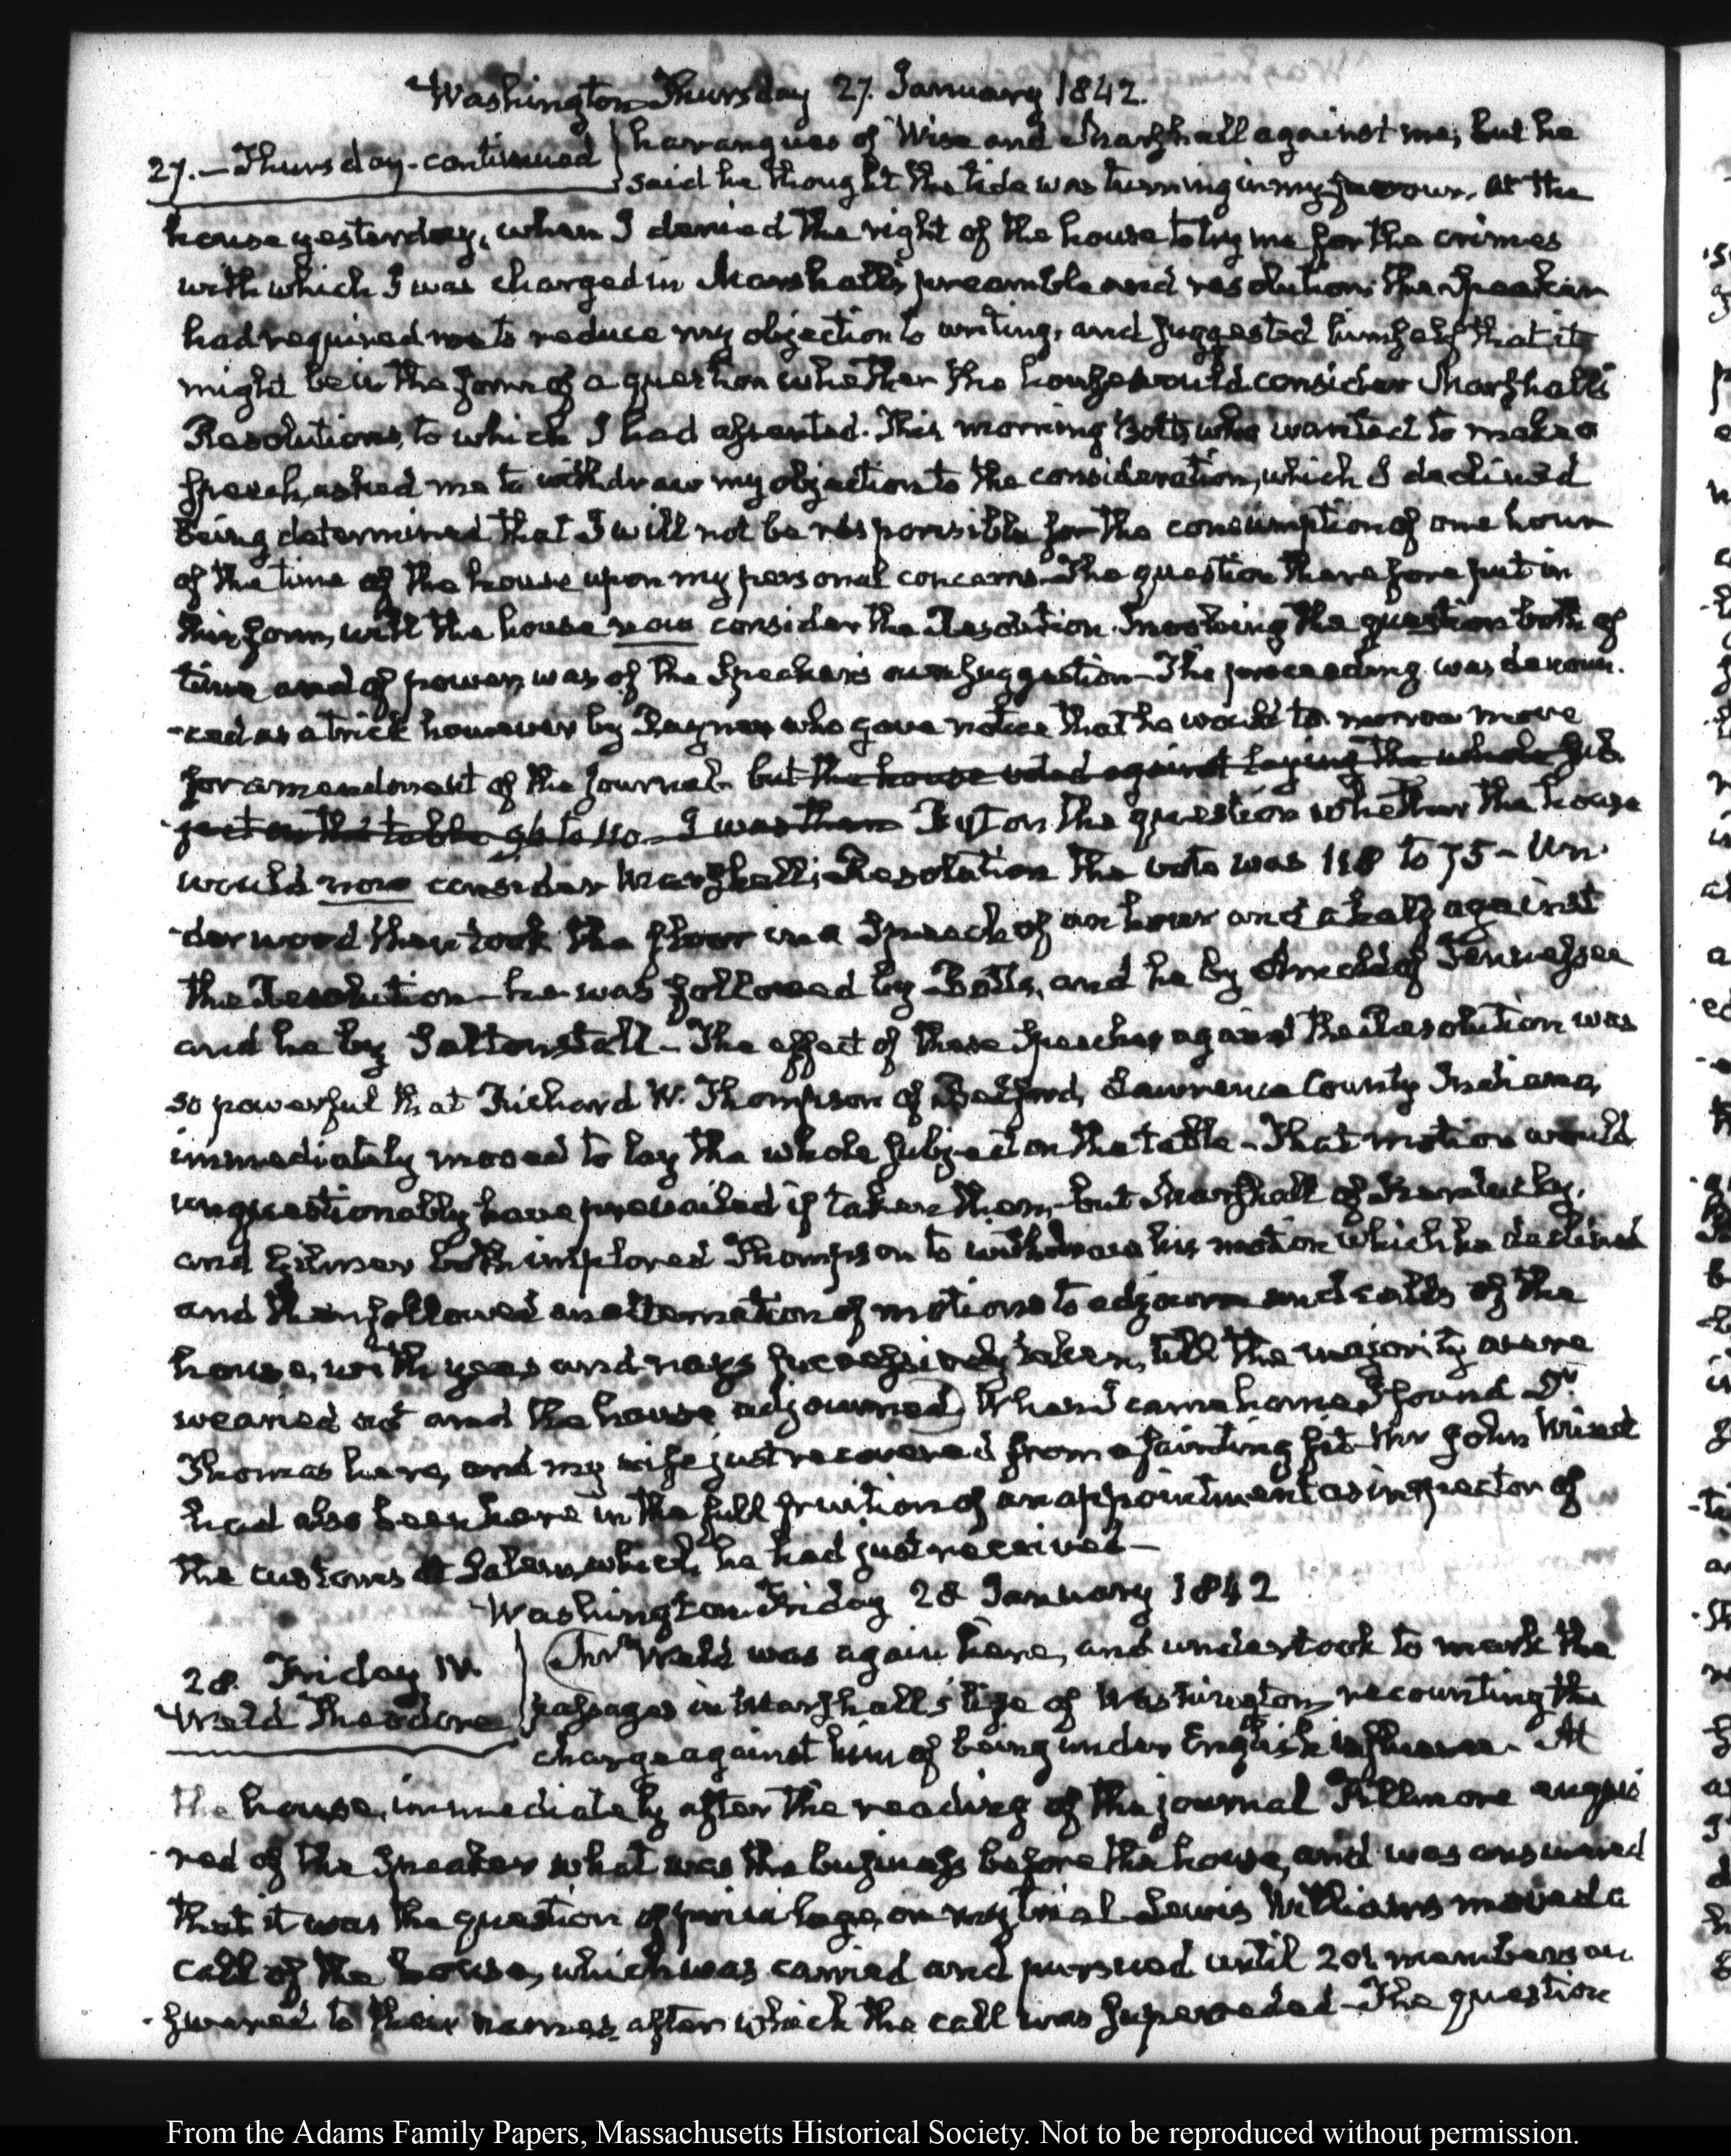 Washington Thursday 27. January 1842.
27.—Thursday-continued
harangues of Wise and Marshall against me; but he
said he thought the tide was turning in my favour. At the
house yesterday, when I denied the right of the house to try me for the crimes
with which I was charged in Marshall's preamble and resolution, the Speaker
had required me to reduce my objection to writing, and suggested himself that it
might be in the form of a question whether the house would consider Marshall's
Resolutions, to which I had assented. This morning Botts, who wanted to make a
speech, asked me to withdraw my objection to the consideration, which I declined
being determined that I will not be responsible for the consumption of one hour
of the time of the house upon my personal concerns. The question therefore put in
this form, will the house now consider the Resolution. Involving the question both of
time and of power, was of the Speaker's own suggestion—The proceeding was denoun-
-ced as a trick however by Rayner who gave notice that he would to-morrow move
for amendment of the journal. but the house voted against laying the whole sub-
-ject on the table to 110. I was then But on the question whether the house
would now consider Marshall's Resolution the vote was 118 to 75 - Un-
-derwood then took the floor in a Speech of an hour and a half against
the Resolution—he was followed by Botts, and he by Arnold of Tennessee
and he by Saltonstall—The effect of these speeches against the Resolution was
so powerful that Richard W. Thompson of Bedford, Lawrence County Indiana,
immediately moved to lay the whole subject on the table—That motion would
unquestionably have prevailed if taken then, but Marshall of Kentucky,
and Gilmer both implored Thompson to withdraw his motion which he declined
and then followed an alternation of motions to adjourn and calls of the
house, with yeas and nays successively taken, till the majority were
wearied out and the house adjourned) When I came home I found Dr
Thomas here, and my wife just recovered from a fainting fit. Mr John
had also been here in the full fruition of an appointment as inspector of
the customs at Salem, which he had just received—
Washington Friday 28 January 1842
28. Friday IV.
Weld Theodore
(Mr Weld was again here, and undertook to mark the
passages in Marshall's life of Washington, recounting the
charge against him of being under English influence. At
the house, immediately after the reading of the journal Fillmore enqui
-red of the Speaker what was the business before the house, and was answered
that it was the question of privilege, on my trial. Lewis Williams moved a
call of the house, which was carried and pursued until 201 members an-
-swered to their names, after which the call was superseded—The question
From the Adams Family Papers, Massachusetts Historical Society. Not to be reproduced without permission.